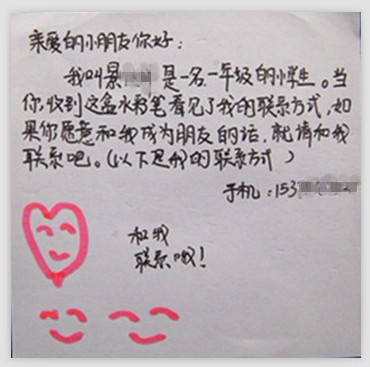 亲爱的小朋友你好：
我叫景 是一名一年级的小学生。当
你收到这盒水彩笔看见了我的联系方式，如
果你愿意和我成为朋友的话，就请和我
联系吧。（以下是我的联系方式）
手机：153
和我
联系哦！